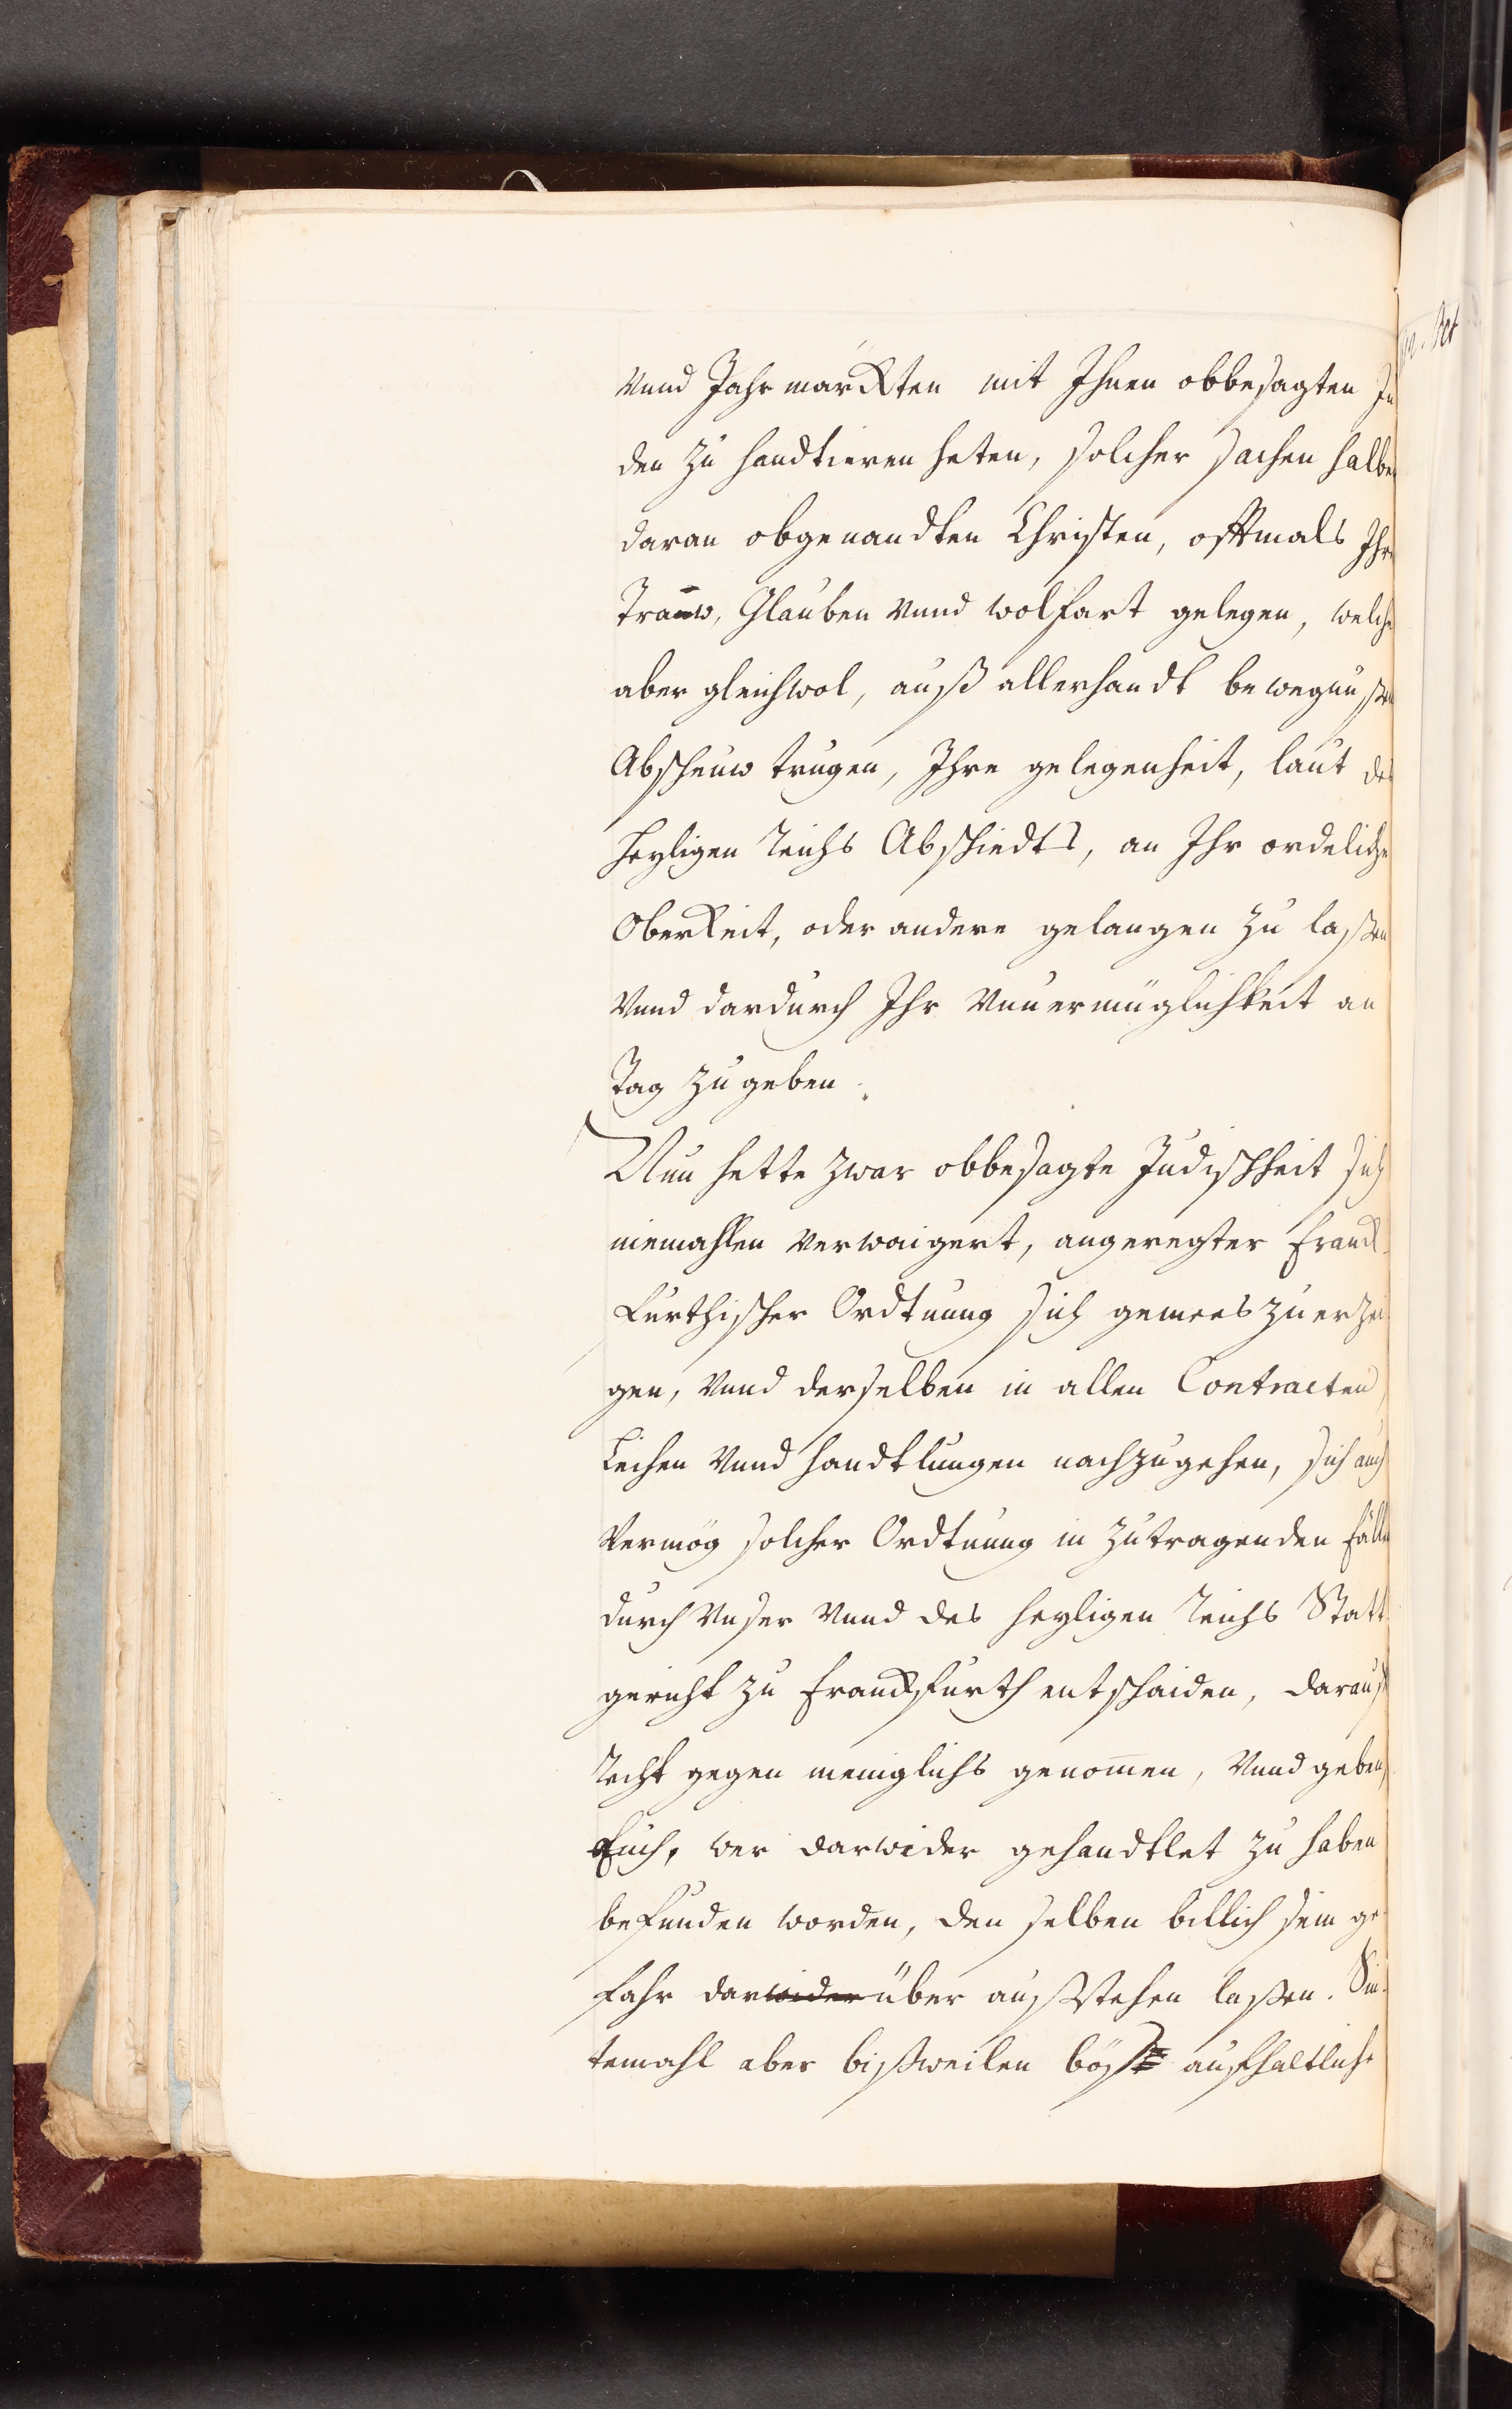 Vnnd Jahrmarckten mit Ihnen obbesagten Ju
den zu handtieren heten, solcher sachen halben
daran obgenandten Christen, offtmals Ihr
Trauw, Glauben Vnnd wolfart gelegen, welche
aber gleichwol, auß allerhandt bewegnußen
Abscheuw trugen, Ihre gelegenheit, laut des
heyligen Reichs Abschiedts, an Ihr ordeliche
Oberkeit, oder andere gelangen zu laßen
Vnnd dardurch Ihr Vnuermüglichkeit an
Tag zu geben.
Nun hette zwar obbesagte Judischheit sich
niemahlen verwaigert, angeregter franck
furthischer Ordtnung sich gemees zu erzei
gen, Vnnd derselben in allen Contracten,
Leihen Vnnd handtlungen nachzugehen, sich auch
Vermög solcher Ordtnung in zutragenden fällen
durch Vnser Vnnd des heyligen Reichs Statt
gericht zu franckfurth entschaiden, darauß
Recht gegen meniglichs genommen, Vnnd geben,
Auch, wer darwider gehandtlet zu haben
befunden worden, den selben billich sein ge
fahr darwider über außstehen laßen. Sin
temahl aber bißweilen böß auffhaltliche